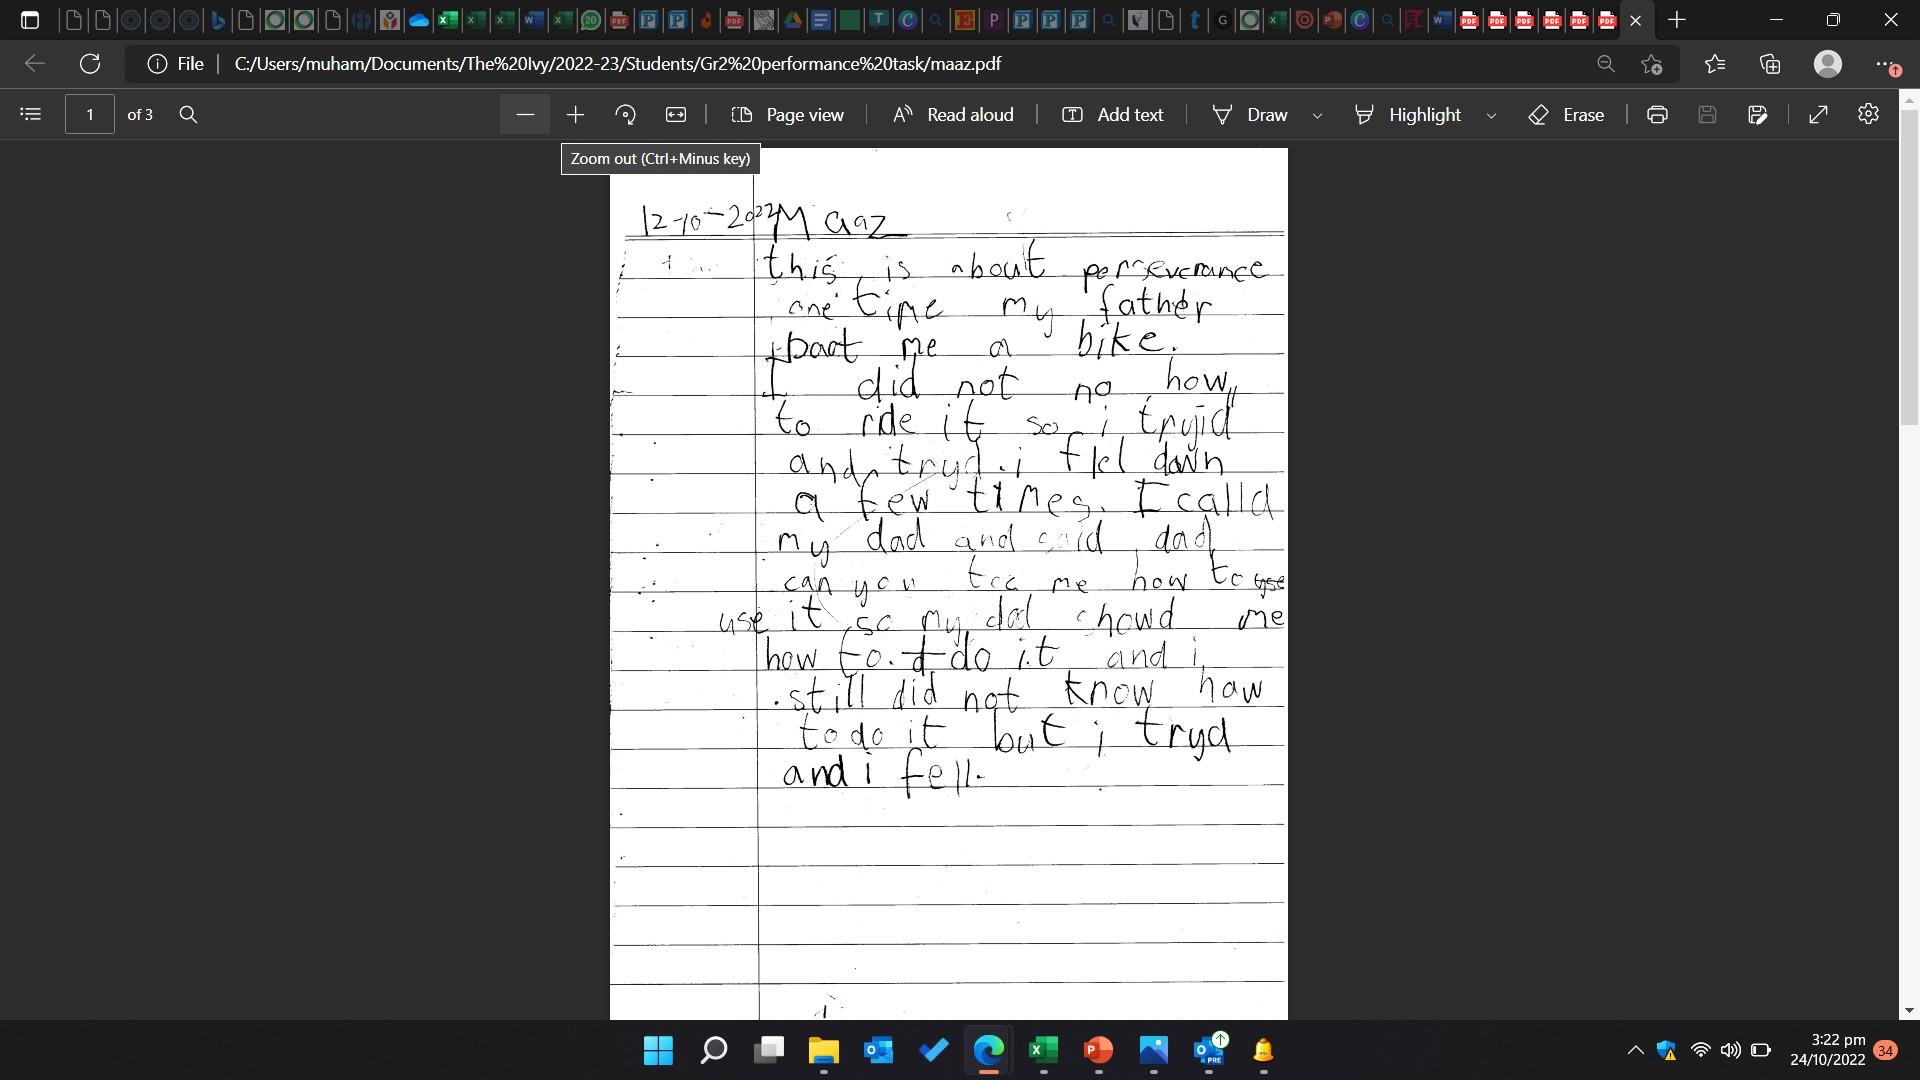 File
C:/Users/muham/Documents/The%20Ivy/2022-23/Students/Gr2%20performance%20task/maaz.pdf
1 of 3
Page view
Read aloud
Add text
Draw
Highlight
Erase
Zoom out (Ctrl+Minus key)
12-10-2022 Maaz
this is about perseverance
one time my father
baat me a bike.
I did not no how
to ride it so i tryid
and tryd. i fel down
a few times. I calld
my dad and said dad
can you tee me how to use
use it so my dad showd me
how to. do it and i
still did not know haw
to do it but i tryd
and i fell.
3:22 pm
24/10/2022
34